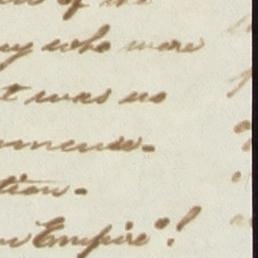 of the
who were
t was no
mmense-
tion-
Empire"!